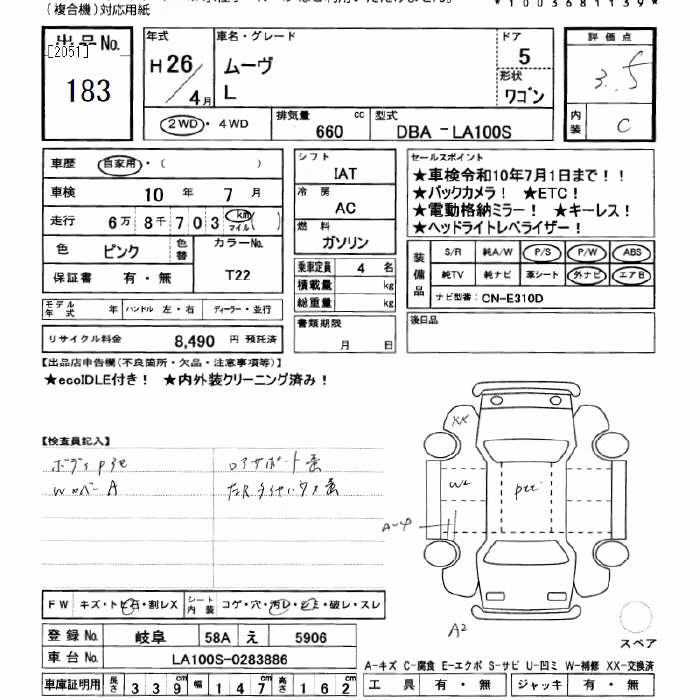 (複合機)対応用紙
*1003681139*
出品No.
[2051]
183
年式
H26/4月
車名・グレード
ムーヴ
L
ドア
5
形状
ワゴン
評価点
3.5
内装
C
2WD・4WD
排気量
660 cc
型式
DBA-LA100S
車歴 自家用・( )
車検 10 年 7 月
走行 6万8千703 km マイル ( )
色 ピンク 色替 カラーNo. T22
保証書 有・無
シフト
IAT
冷房
AC
燃料
ガソリン
乗車定員 4 名
積載量 kg
総重量 kg
書類期限
月 日
セールスポイント
★車検令和10年7月1日まで!!
★バックカメラ! ★ETC!
★電動格納ミラー! ★キーレス!
★ヘッドライトレベライザー!
装備品
S/R 純A/W P/S P/W ABS
純TV 純ナビ 革シート 外ナビ エアB
ナビ型番: CN-E310D
後日品
モデル年式 年 ハンドル 左・右 ディーラー・並行
リサイクル料金 8,490 円 預託済
【出品店申告欄(不良箇所・欠品・注意事項等)】
★ecoIDLE付き! ★内外装クリーニング済み!
【検査員記入】
XX
W2
A2
FW キズ・トビ石・割レX シート内装 コゲ・穴・汚レ・シミ・破レ・スレ
登録No. 岐阜 58A え 5906
車台No. LA100S-0283886
車庫証明用 長さ 339 幅 147 高さ 162 cm
スペア
A-キズ C-腐食 E-エクボ S-サビ U-凹ミ W-補修 XX-交換済
工具 有・無 ジャッキ 有・無